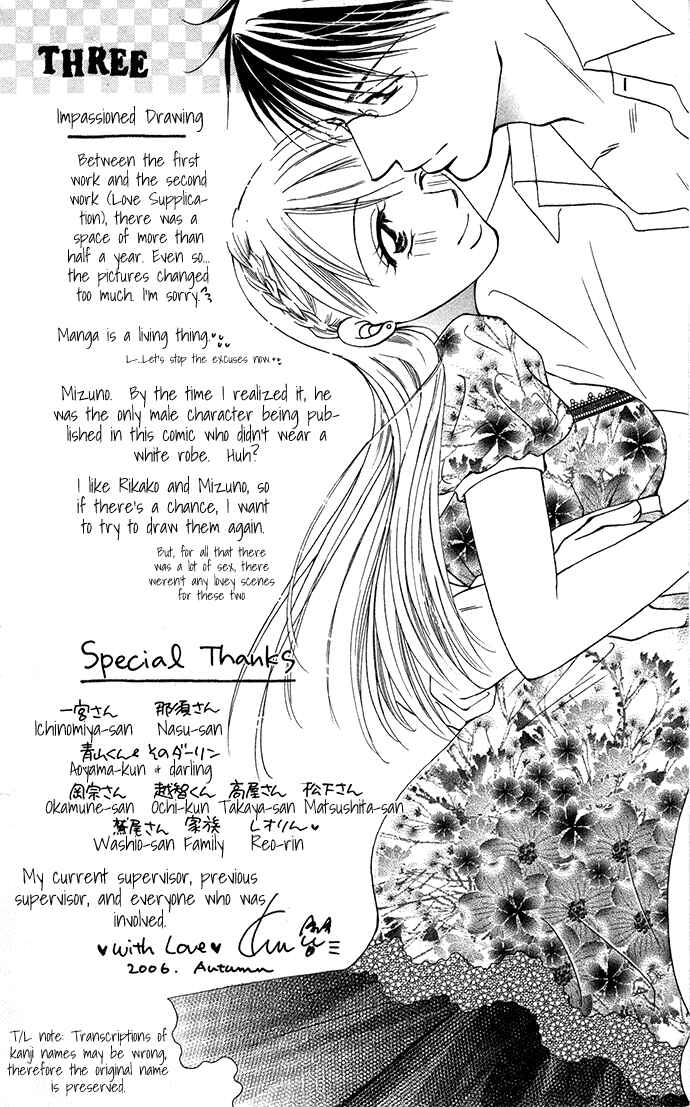 THREE
Impassioned Drawing
Between the first
work and the second
work (Love Supplica-
tion), there was a
space of more than
half a year. Even so...
the pictures changed
too much. I'm sorry.
Manga is a living thing.
L-...Let's stop the excuses now.
Mizuno. By the time I realized it, he
was the only male character being pub-
lished in this comic who didn't wear a
white robe. Huh?
I like Rikako and Mizuno, so
if there's a chance, I want
to try to draw them again.
But, for all that there
was a lot of sex, there
werent any lovey scenes
for these two
Special Thanks
一宮さん 那須さん
Ichinomiya-san Nasu-san
青山くん&そのダーリン
Aoyama-kun + darling
岡宗さん 越智くん 高屋さん 松下さん
Okamune-san Ochi-kun Takaya-san Matsushita-san
鷲屋さん 家族 レオりん♥
Washio-san Family Reo-rin
My current supervisor, previous
supervisor, and everyone who was
involved.
♥with Love♥
2006. Autumn
T/L note: Transcriptions of
kanji names may be wrong,
therefore the original name
is preserved.